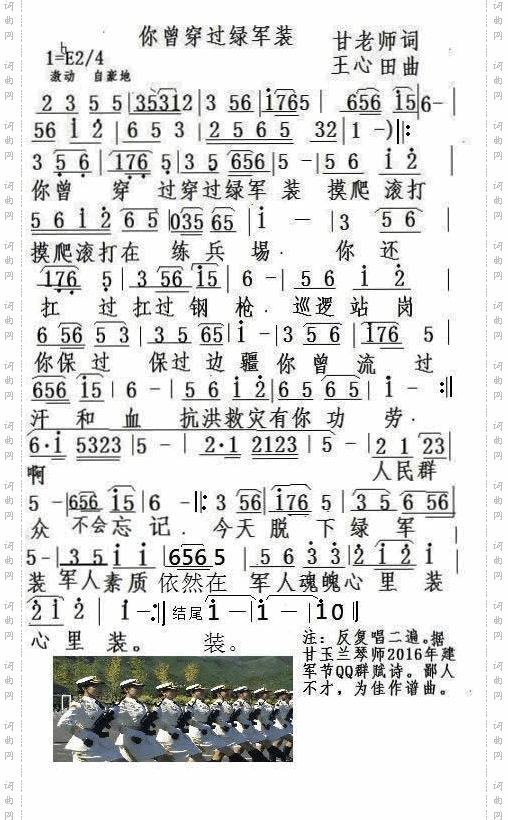 你曾穿过绿军装 甘老师词
1=bE2/4 王心田曲
激动 自豪地
2 3 5 5 | 35312 | 3 56 | i765 | 656 i5 | 6 - |
56 i 2 | 6 5 3 | 2 5 6 5 32 | 1 - ) ‖:
3 5 6 | 176 5 | 3 5 656 | 5 - | 5 6 i 2 |
你曾 穿 过穿过绿军 装 摸爬 滚打
5 6 i 2 6 5 | 035 65 | i - | 3 5 6 |
摸爬滚打在 练兵場. 你还
176 5 | 3 56 i5 | 6 - | 5 6 i 2 |
扛 过扛过钢枪. 巡逻站岗
6 56 5 3 | 3 5 65 | i - | 3 5 6 | i76 5 |
你保过 保过边疆你曾流 过
656 i5 | 6 - | 5 6 i 2 | 6 5 6 5 | i - :‖
汗和血 抗洪救灾有你功劳.
6·i 5323 | 5 - | 2·1 2123 | 5 - | 2 1 23 |
啊 人民群
5 - | 656 i5 | 6 - ‖: 3 56 | i76 5 | 3 5 6 56 |
众 不会忘记. 今天脱 下绿军
5 - | 3 5 i i | 656 5 | 5 6 3 3 | 2 i 2 i |
装 军人素质 依然在 军人魂魄心里 装
2 i 2 | i - :‖ 结尾 i - | i - | i 0 ‖
心里 装。 装。
注：反复唱二遍。据
甘玉兰琴师2016年建
军节QQ群赋诗。鄙人
不才，为佳作谱曲。
词曲网